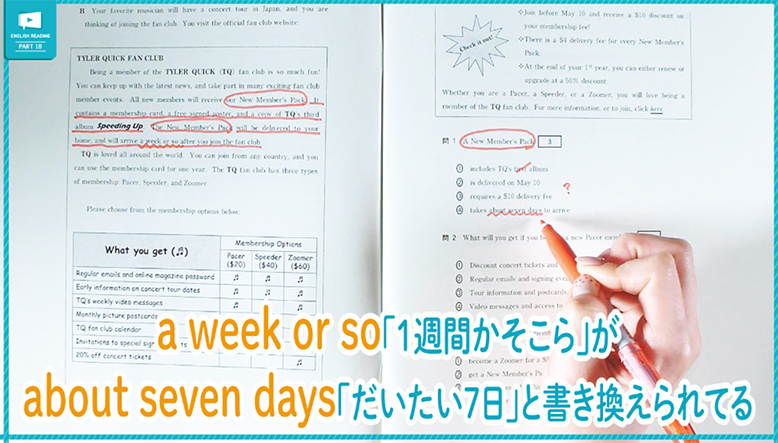 ENGLISH READING
PART 1B
B Your favorite musician will have a concert tour in Japan, and you are
thinking of joining the fan club. You visit the official fan club website.
TYLER QUICK FAN CLUB
Being a member of the TYLER QUICK (TQ) fan club is so much fun!
You can keep up with the latest news, and take part in many exciting fan club
member events. All new members will receive our New Member's Pack. It
contains a membership card, a free signed poster, and a copy of TQ's third
album Speeding Up. The New Member's Pack will be delivered to your
home, and will arrive a week or so after you join the fan club.
TQ is loved all around the world. You can join from any country, and you
can use the membership card for one year. The TQ fan club has three types
of membership: Pacer, Speeder, and Zoomer.
Please choose from the membership options below.
What you get (♫)
Membership Options
Pacer
($20)
Speeder
($40)
Zoomer
($60)
Regular emails and online magazine password
♫ ♫ ♫
Early information on concert tour dates
♫ ♫ ♫
TQ's weekly video messages
♫ ♫ ♫
Monthly picture postcards
TQ fan club calendar
Invitations to special sign
20% off concert tickets
♫
Check it out!
❖Join before May 10 and receive a $10 discount on
your membership fee!
❖There is a $4 delivery fee for every New Member's
Pack.
❖At the end of your 1st year, you can either renew or
upgrade at a 50% discount.
Whether you are a Pacer, a Speeder, or a Zoomer, you will love being a
member of the TQ fan club. For more information, or to join, click here.
問 1 A New Member's Pack 3
① includes TQ's first album
② is delivered on May 10
?
③ requires a $10 delivery fee
④ takes about seven days to arrive
問 2 What will you get if you a new Pacer
① Discount concert tickets and
② Regular emails and signing
③ Tour information and postcards
④ Video messages and access to
become a Zoomer for a
get a New Member's Pa
a week or so「1週間かそこら」が
about seven days「だいたい7日」と書き換えられてる